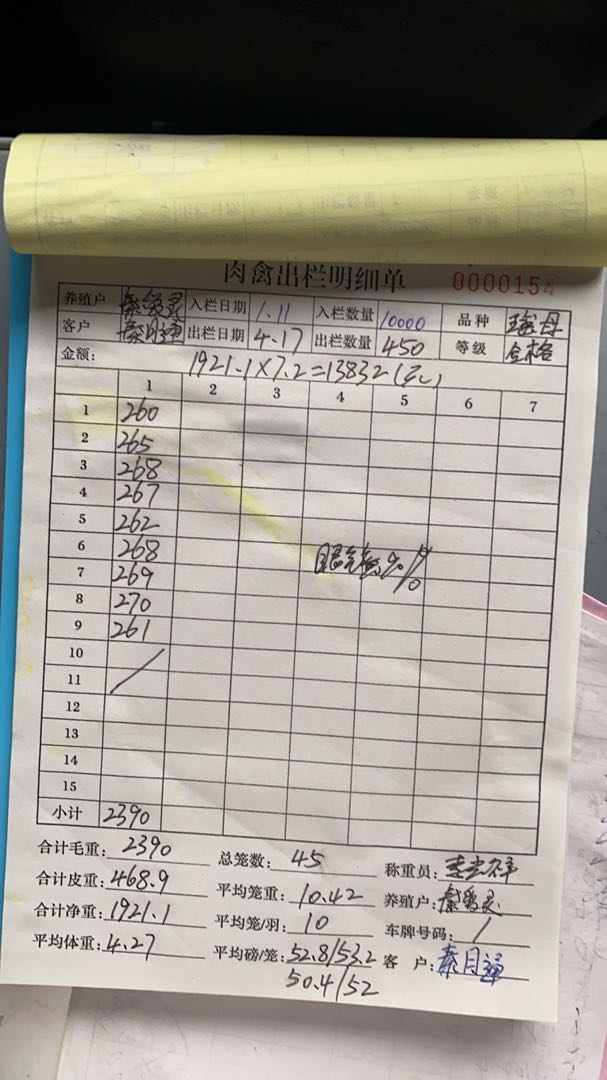 肉禽出栏明细单 0000154
养殖户 入栏日期 1.11 入栏数量 10000 品种
客户 秦月 出栏日期 4.17 出栏数量 450 等级 合格
金额: 1921.1×7.2=13832(元)
1 2 3 4 5 6 7
1 260
2 265
3 268
4 267
5 262
6 268
7 269
8 270
9 261
10
11
12
13
14
15
小计 2390
合计毛重: 2390 总笼数: 45 称重员:
合计皮重: 468.9 平均笼重: 10.42 养殖户:
合计净重: 1921.1 平均笼/羽: 10 车牌号码: /
平均体重: 4.27 平均磅/笼: 52.8/53.2 客 户: 秦月
50.4/52